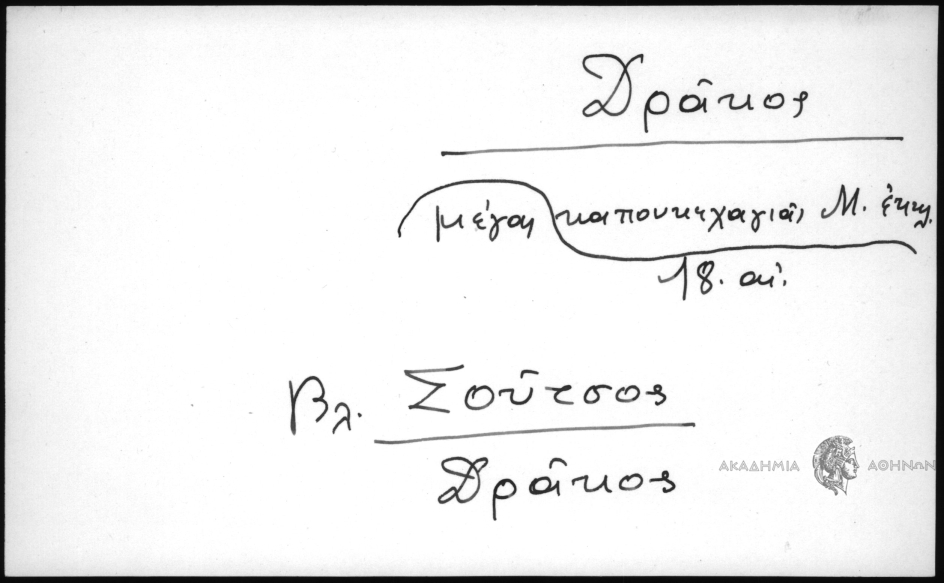 Δρᾶκος
μέγας καπουκεχαγιᾶς Μ. ἐκκλ.
18. αἰ.
Βλ. Σοῦτσος
Δρᾶκος
ΑΚΑΔΗΜΙΑ ΑΘΗΝΩΝ